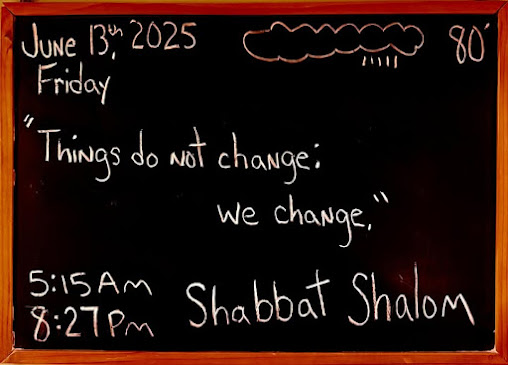 June 13th, 2025
80°
Friday
"Things do not change;
we change."
5:15 Am
8:27 Pm
Shabbat Shalom